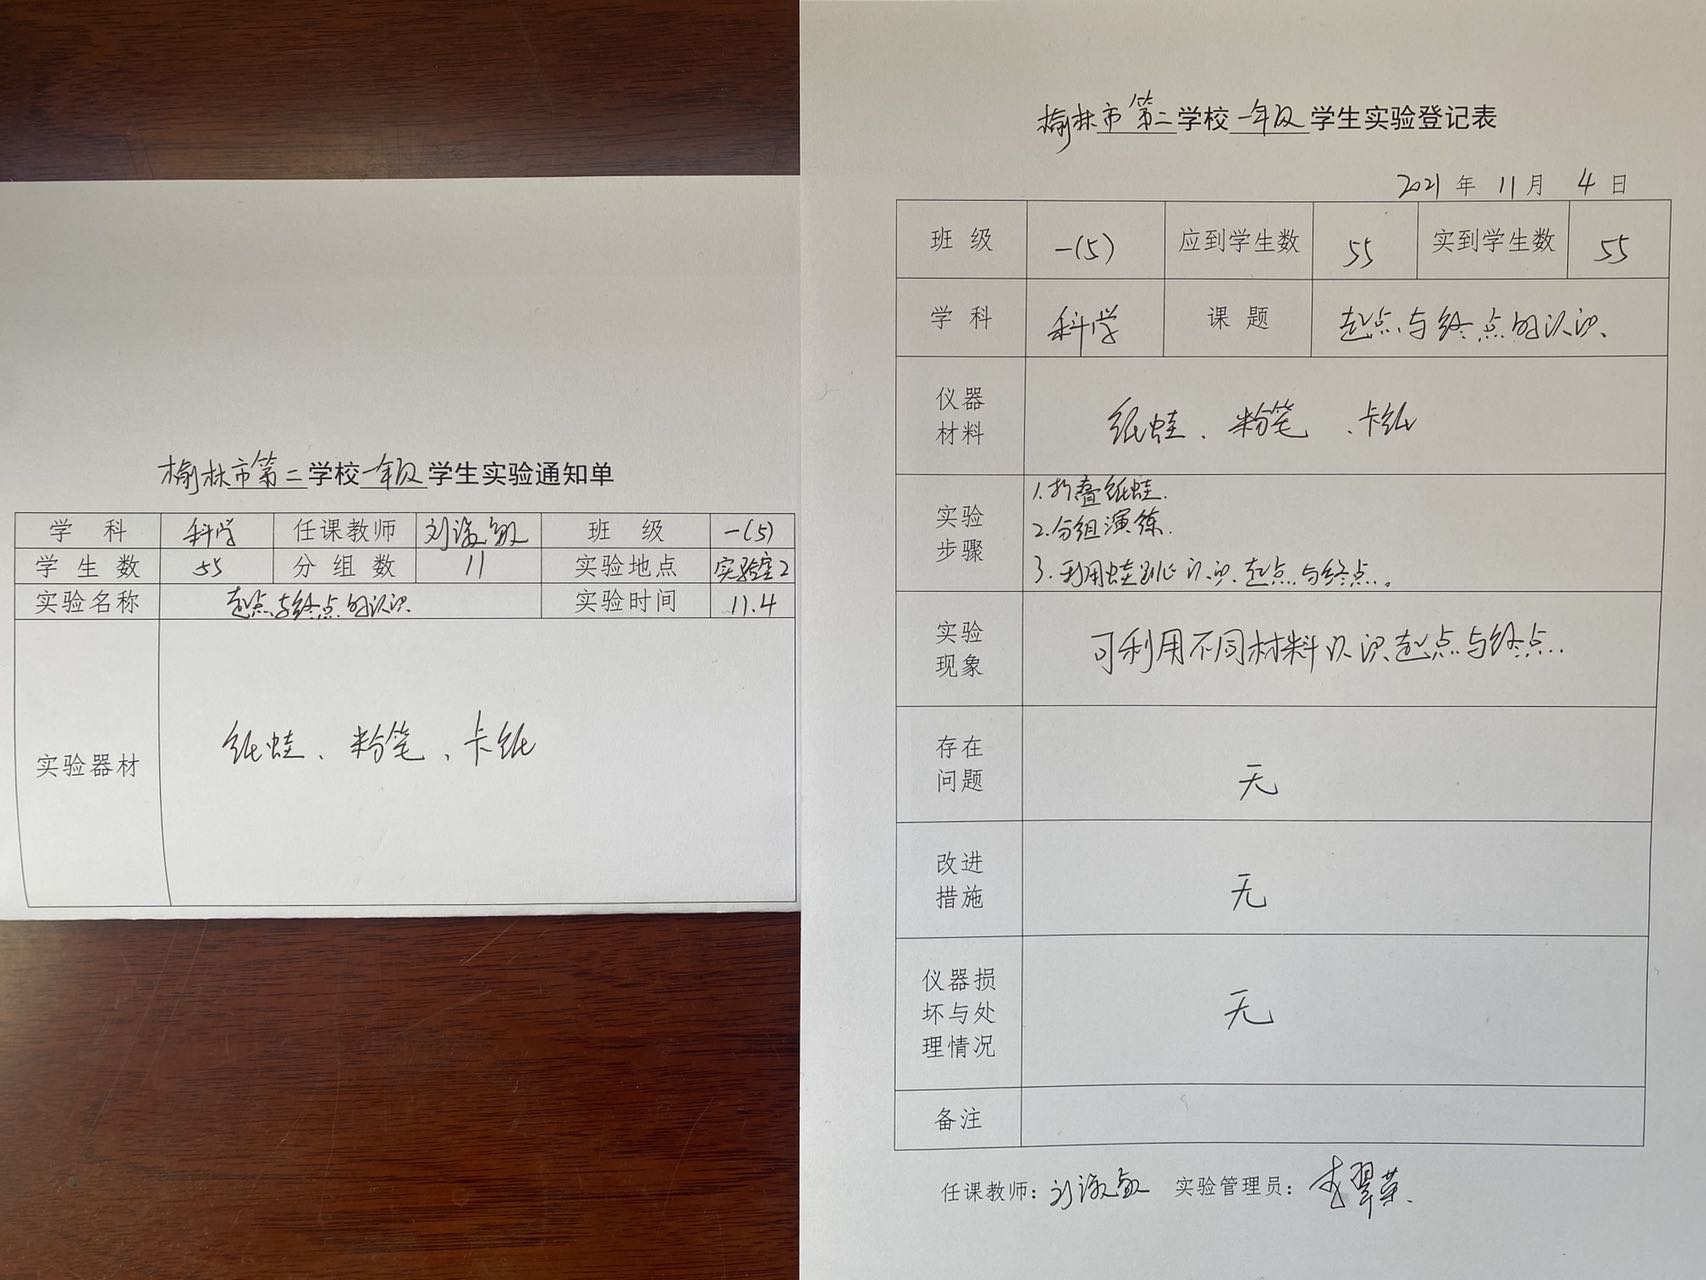 榆林市第二学校一年级学生实验通知单
学 科 科学 任课教师 刘海敏 班 级 一(5)
学 生 数 55 分 组 数 11 实验地点 实验室2
实验名称 起点与终点的认识 实验时间 11.4
实验器材 纸蛙、粉笔、卡纸
榆林市第二学校一年级学生实验登记表
2021 年 11 月 4 日
班 级 一(5) 应到学生数 55 实到学生数 55
学 科 科学 课 题 起点与终点的认识.
仪器
材料
纸蛙、粉笔、卡纸
实验
步骤
1.折叠纸蛙.
2.分组演练.
3.利用蛙跳认识起点与终点。
实验
现象
可利用不同材料认识起点与终点.
存在
问题
无
改进
措施
无
仪器损
坏与处
理情况
无
备注
任课教师：刘海敏 实验管理员：李翠荣.